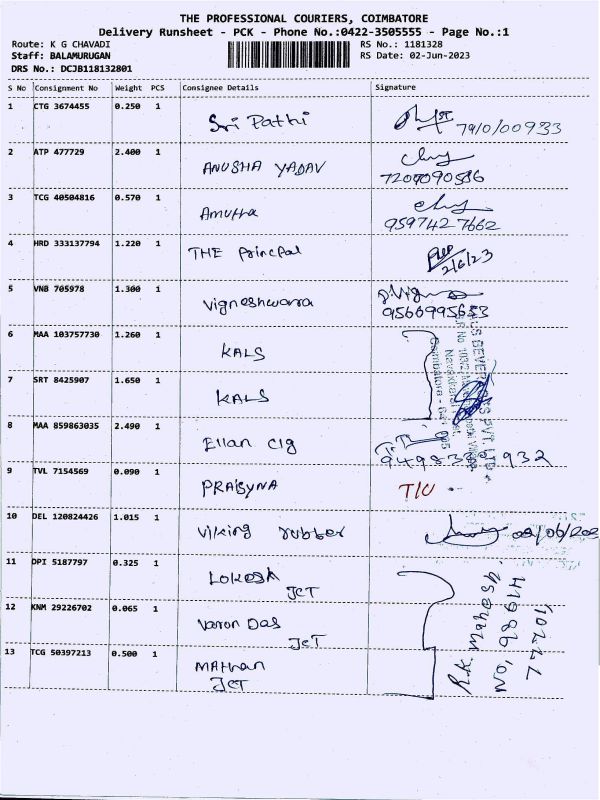 THE PROFESSIONAL COURIERS, COIMBATORE
Delivery Runsheet - PCK - Phone No.:0422-3505555 - Page No.:1
Route: K G CHAVADI RS No.: 1181328
Staff: BALAMURUGAN RS Date: 02-Jun-2023
DRS No.: DCJB118132801
S No Consignment No Weight PCS Consignee Details Signature
1 CTG 3674455 0.250 1 Sri Pathi
2 ATP 477729 2.400 1 ANUSHA YADAV
3 TCG 40504816 0.570 1 Amutha 9597427662
4 HRD 333137794 1.220 1 THE Princpal 2/6/23
5 VNB 705978 1.300 1 Vigneshwara
6 MAA 103757730 1.260 1 KALS
7 SRT 8425907 1.650 1 KALS
8 MAA 859863035 2.490 1 Ellan cig
9 TVL 7154569 0.090 1 T/U
10 DEL 120824426 1.015 1 Viking rubber
11 DPI 5187797 0.325 1 Lokesh
JCT
12 KNM 29226702 0.065 1 Varon Das
JCT
13 TCG 50397213 0.500 1 Mathan
JCT